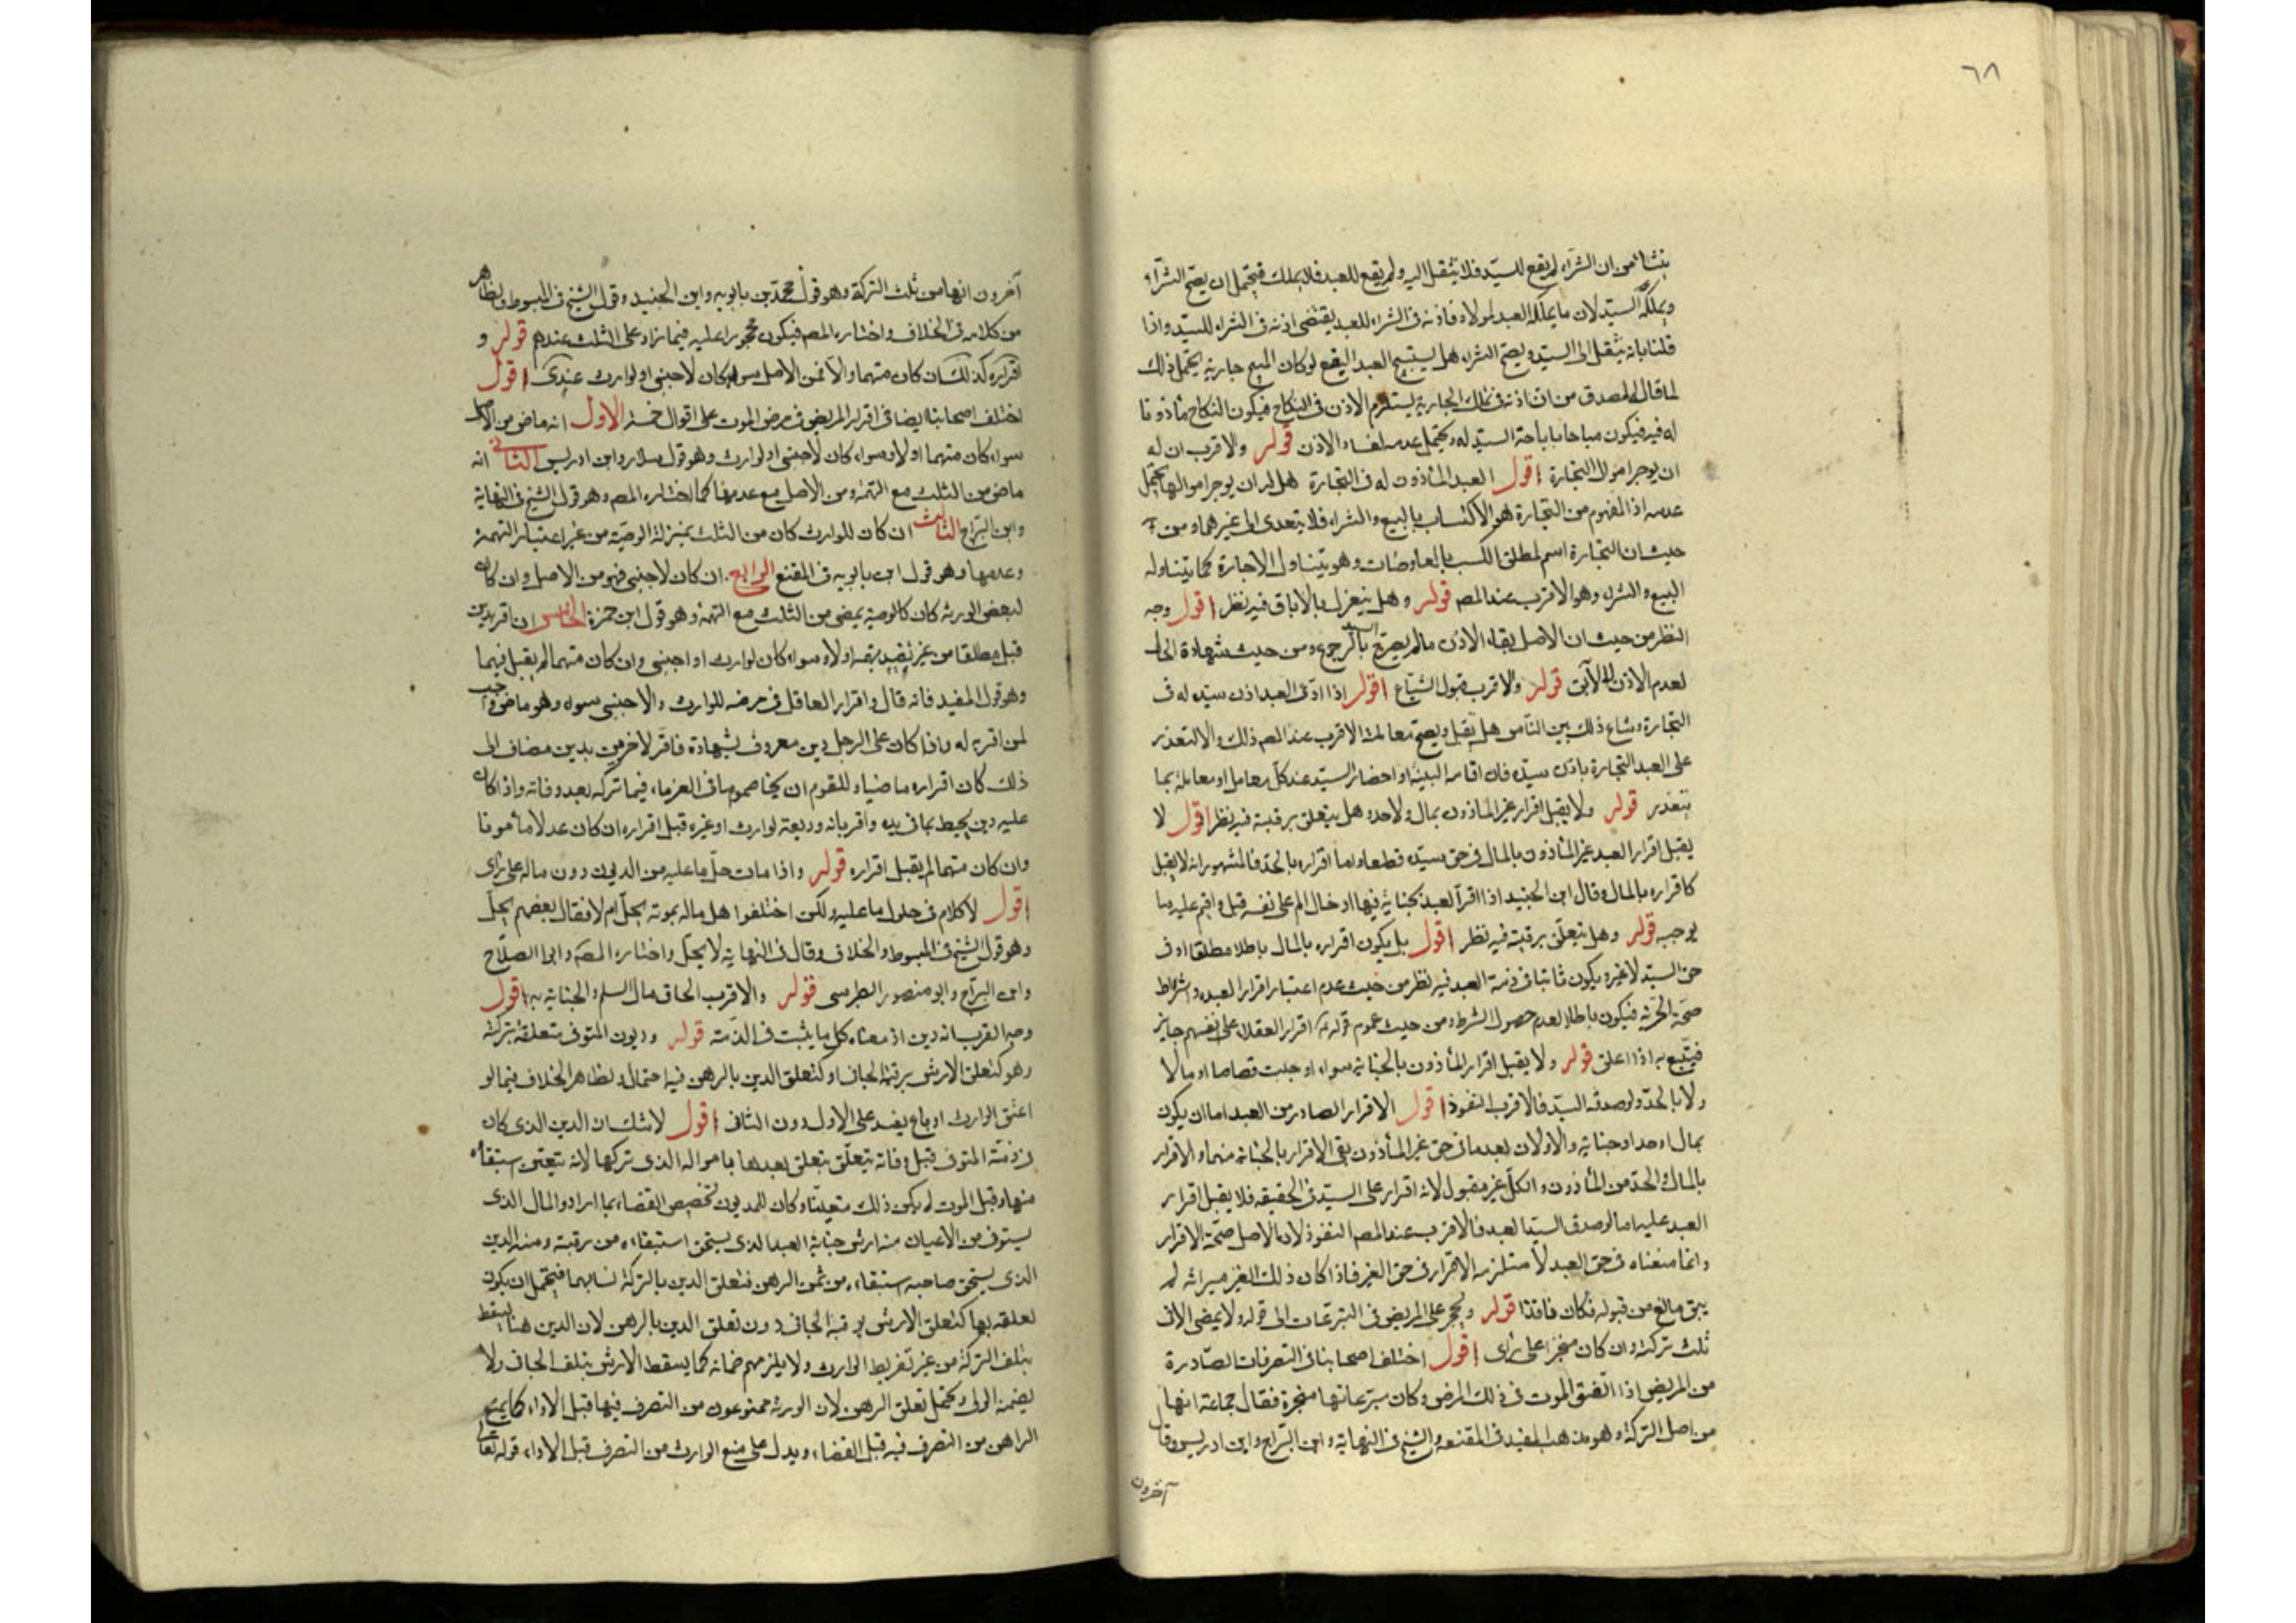 ٦٨
ينشأ من ان الشراء لم يقع للسيد فلا ينتقل اليه ولم يقع للعبد فلا يملك فيحتمل ان يصح الشراء
ويملكه السيد لان ما يملكه العبد لمولاه فاذنه فى الشراء للعبد يقتضى اذنه فى الشراء للسيد واذا
قلنا بانه ينتقل الى السيد ويصح الشراء هل يستبيح العبد البضع لو كان المبيع جارية يحتمل ذلك
لما قاله المصدق من ان اذنه فى تملك الجارية يستلزم الاذن فى النكاح فيكون النكاح مأذونا
له فيه فيكون مباحا باباحة السيد له ويحتمل عدمه لفساد الاذن قوله والاقرب ان له
ان يوجر اموال التجارة اقول العبد المأذون له فى التجارة هل له ان يوجر اموالها يحتمل
عدمه اذ المفهوم من التجارة هو الاكتساب بالبيع والشراء فلا يتعدى الى غيرهما ومن
حيث ان التجارة اسم لمطلق الكسب بالمعاوضات وهو يتناول الاجارة كما يتناوله
البيع والشراء وهو الاقرب عند المصم قوله وهل ينعزل بالاباق فيه نظر اقول وجه
النظر من حيث ان الاصل بقاء الاذن ما لم يصرح السيد بالرجوع ومن حيث شهادة الحال
لعدم الاذن للآبق قوله والاقرب قبول الشياع اقول اذا ادعى العبد اذن سيده له فى
التجارة وشاع ذلك بين الناس هل يقبل ويصح معاملته الاقرب عند المصم ذلك والا لتعذر
على العبد التجارة باذن سيده فان اقامة البينة او احضار السيد عند كل معامل او معاملة مما
يتعذر قوله ولا يقبل اقرار غير المأذون بمال ولا حد وهل يتعلق برقبته فيه نظر اقول لا
يقبل اقرار العبد غير المأذون بالمال فى حق سيده قطعا واما اقراره بالحد فالمشهور انه لا يقبل
كاقراره بالمال وقال ابن الجنيد اذا اقر العبد بجناية فيها ادخال الم على نفسه قبل واقيم عليه ما
يوجبه قوله وهل يتعلق برقبته فيه نظر اقول بل يكون اقراره بالمال باطلا مطلقا او فى
حق السيد لا غير ويكون ثابتا فى ذمة العبد فيه نظر من حيث عدم اعتبار اقرار العبد واشتراط
صحته الحرية فيكون باطلا لعدم حصول الشرط ومن حيث عموم قوله اقرار العقلاء على انفسهم جايز
فيتبع به اذا اعتق قوله ولا يقبل اقرار المأذون بالجناية سواء اوجبت قصاصا او مالا
ولا بالحد ولو صدقه السيد فالاقرب النفوذ اقول الاقرار الصادر من العبد اما ان يكون
بمال او حد او جناية والاولان بعدما فى حق غير المأذون بقى الاقرار بالجناية منهما والاقرار
بالمال والحد من المأذون والكل غير مقبول لانه اقرار على السيد فى الحقيقه فلا يقبل اقرار
العبد عليه اما لو صدق السيد العبد فالاقرب عند المصم النفوذ لان الاصل صحة الاقرار
وانما منعناه فى حق العبد لاستلزامه الاقرار فى حق الغير فاذا كان ذلك الغير ميراثه لم
يبق مانع من قبوله فكان نافذا قوله ويحجر على المريض فى التبرعات الى قوله ولا يمضى الا فى
ثلث تركته وان كان منجزا على راى اقول اختلف اصحابنا فى التصرفات الصادرة
من المريض اذا اتفق الموت فى ذلك المرض وكان متبرعا بها منجزة فقال جماعة انها
من اصل التركة وهو مذهب المفيد فى المقنعه والشيخ فى النهاية وابن البراج وابن ادريس وقال
آخرون
آخرون انها من ثلث التركة وهو قول محمد بن بابويه وابن الجنيد وقول الشيخ فى المبسوط وظاهر
من كلامه فى الخلاف واختاره المصم فيكون محجورا عليه فيما زاد على الثلث عندهم قوله و
اقراره كذلك ان كان متهما والا فمن الاصل سواء كان لاجنبى او لوارث عندى اقول
اختلف اصحابنا ايضا فى اقرار المريض فى مرض الموت على اقوال خمسة الاول انه ماض من الاصل
سواء كان متهما او لا وسواء كان لاجنبى او لوارث وهو قول سلار وابن ادريس الثانى انه
ماض من الثلث مع التهمة ومن الاصل مع عدمها كما اختاره المصم وهو قول الشيخ فى النهاية
وابن البراج الثالث ان كان للوارث كان من الثلث بمنزلة الوصية من غير اعتبار التهمة
وعدمها وهو قول ابن بابويه فى المقنع الرابع ان كان لاجنبى فهو من الاصل وان كان
لبعض الورثة كان كالوصية يمضى من الثلث مع التهمة وهو قول ابن حمزة الخامس ان اقر بدين
قبل مطلقا من غير تقييد بتهمة اولا وسواء كان لوارث او اجنبى وان كان متهما لم يقبل فيهما
وهو قول المفيد فانه قال واقرار العاقل فى مرضه للوارث والاجنبى سواء وهو ماض واجب
لمن اقر به له واذا كان على الرجل دين معروف بشهادة فاقر لاخرين بدين مضاف الى
ذلك كان اقراره ماضيا وللقوم ان يخاصموا باقى الغرماء فيما تركه بعد وفاته واذا كان
عليه دين يحيط بما فى يده واقر بانه وديعة لوارث او غيره قبل اقراره ان كان عدلا مأمونا
وان كان متهما لم يقبل اقراره قوله واذا مات حل ما عليه من الديون دون ماله على راى
اقول لا كلام فى حلول ما عليه ولكن اختلفوا هل ماله بموته يحل ام لا فقال بعضهم يحل
وهو قول الشيخ فى المبسوط والخلاف وقال فى النهاية لا يحل واختاره المصم وابى الصلاح
وابن البراج وابو منصور الطبرسى قوله والاقرب الحاق مال السلم والجناية به اقول
وجه القرب انه دين اذ معناه كل ما يثبت فى الذمة قوله وديون المتوفى متعلقة بتركته
وهو كتعلق الارش برقبة الجانى او كتعلق الدين بالرهن فيه احتمال ويظهر الخلاف فيما لو
اعتق الوارث او باع ينفذ على الاول دون الثانى اقول لا شك ان الدين الذى كان
فى ذمة المتوفى قبل وفاته يتعلق يتعلق بعدها بامواله الذى تركها لانه يتعين استيفاءه
منها وقبل الموت لم يكن ذلك متعينا وكان للمديون تخصيص القضاء بما اراد والمال الذى
يستوفى من الاعيان منه ارش جناية العبد الذى يستحق استيفاءه من رقبته ومنه الدين
الذى يستحق صاحبه استيفاءه من ثمن الرهن فتعلق الدين بالتركة لشابههما فيحتمل ان يكون
تعلقه بها كتعلق الارش برقبة الجانى دون تعلق الدين بالرهن لان الدين هنا يسقط
بتلف التركة من غير تفريط الوارث ولا يلزمهم ضمانه كما يسقط الارش بتلف الجانى ولا
يضمنه المولى ويحتمل تعلق الرهن لان الورثة ممنوعون من التصرف فيها قبل الاداء كما يمنع
الراهن من التصرف فيه قبل القضاء ويدل على منع الوارث من التصرف قبل الاداء قوله تعالى